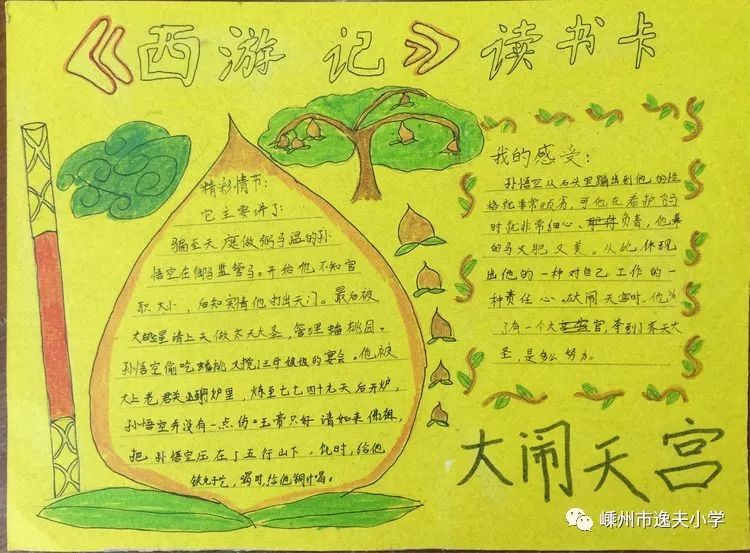 《西游记》读书卡
精彩情节:
它主要讲了:
骗至天庭做弼马温的孙
悟空在御马监管马。开始他不知官
职大小,后知实情他打出天门。最后被
太白金星请上天做齐天大圣,管理蟠桃园。
孙悟空偷吃蟠桃又搅了王母娘娘的宴会。他被
太上老君关进炉里,炼至七七四十九天后开炉,
孙悟空并没有一点伤。玉帝只好请如来佛祖,
把孙悟空压在了五行山下,饥时,给他
铁丸子吃,渴时,给他铜汁喝。
我的感受:
孙悟空从石头里蹦出到他的性
格就非常顽劣,可他在看护马
时就非常细心、负责,他养
的马又肥又美。从此体现
出他的一种对自己工作的一
种责任心。在大闹天宫时,他为
了有一个大官,拿到了齐天大
圣,是多么努力。
大闹天宫
嵊州市逸夫小学